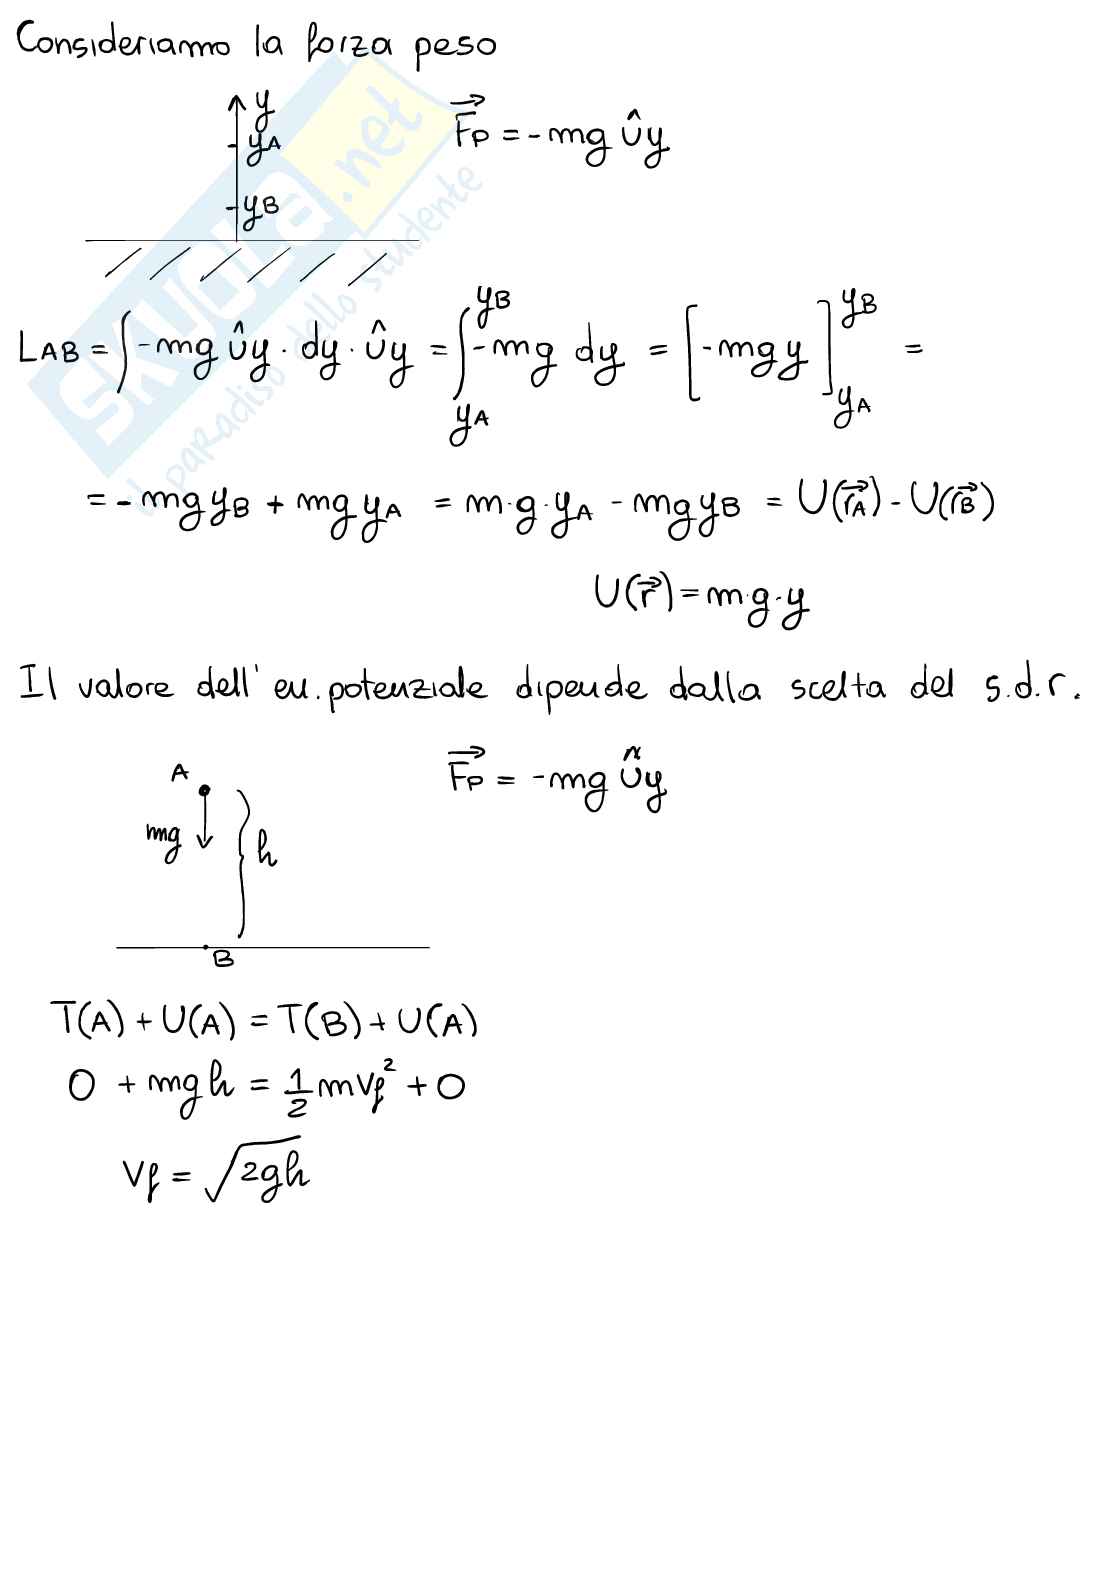 Consideriamo la forza peso
y
yA
yB
F⃗p = -mg ûy
LAB = ∫ -mg ûy · dy · ûy = ∫_{yA}^{yB} -mg dy = [-mgy]_{yA}^{yB} =
= -mgyB + mgyA = m·g·yA - mgyB = U(r⃗A) - U(r⃗B)
U(r⃗) = m·g·y
Il valore dell' en. potenziale dipende dalla scelta del s.d.r.
A
mg
h
B
F⃗p = -mg ûy
T(A) + U(A) = T(B) + U(A)
0 + mgh = 1/2 mVf² + 0
Vf = √2gh
SKUOLA.net
il paradiso dello studente